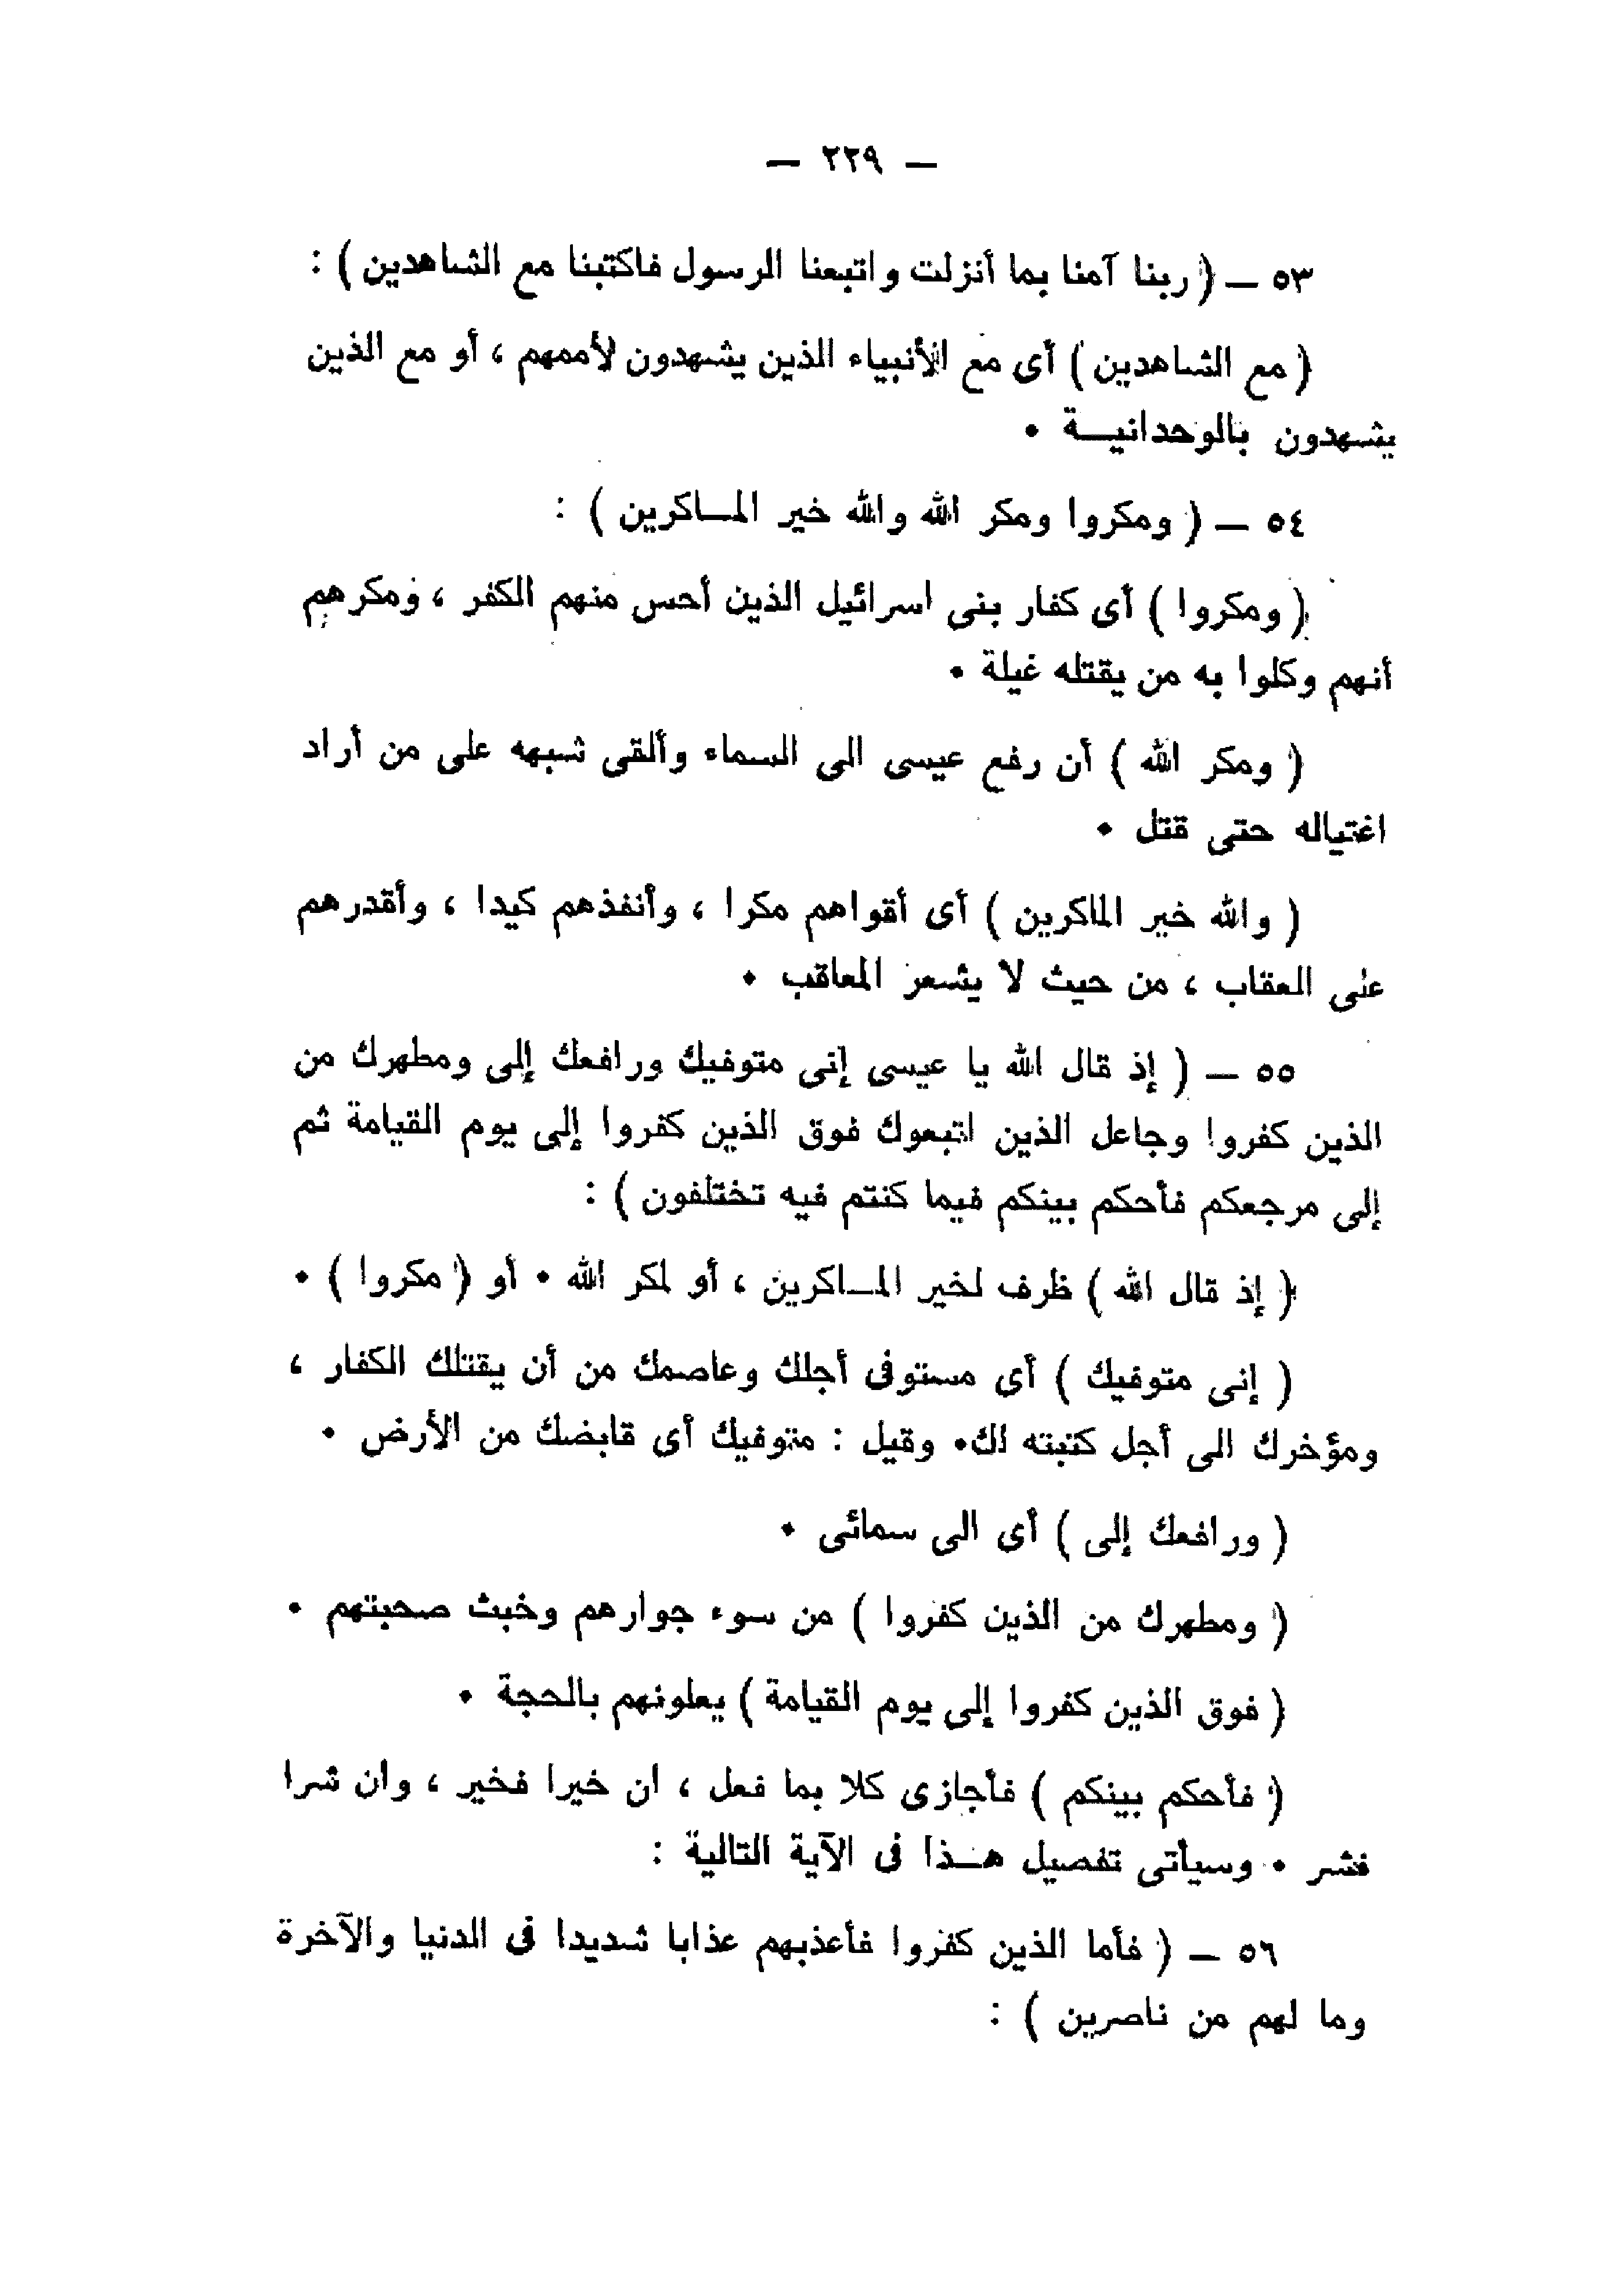 — ٢٢٩ —
٥٣ — ( ربنا آمنا بما أنزلت واتبعنا الرسول فاكتبنا مع الشاهدين ) :
( مع الشاهدين ) أى مع الأنبياء الذين يشهدون لأممهم ، أو مع الذين
يشهدون بالوحدانيــة •
٥٤ — ( ومكروا ومكر الله والله خير المــاكرين ) :
( ومكروا ) أى كفار بنى اسرائيل الذين أحس منهم الكفر ، ومكرهم
أنهم وكلوا به من يقتله غيلة •
( ومكر الله ) أن رفع عيسى الى السماء وألقى شبهه على من أراد
اغتياله حتى قتل •
( والله خير الماكرين ) أى أقواهم مكرا ، وأنفذهم كيدا ، وأقدرهم
على العقاب ، من حيث لا يشعر المعاقب •
٥٥ — ( إذ قال الله يا عيسى إنى متوفيك ورافعك إلى ومطهرك من
الذين كفروا وجاعل الذين اتبعوك فوق الذين كفروا إلى يوم القيامة ثم
إلى مرجعكم فأحكم بينكم فيما كنتم فيه تختلفون ) :
( إذ قال الله ) ظرف لخير المــاكرين ، أو لمكر الله • أو ( مكروا ) •
( إنى متوفيك ) أى مستوفى أجلك وعاصمك من أن يقتلك الكفار ،
ومؤخرك الى أجل كتبته لك• وقيل : متوفيك أى قابضك من الأرض •
( ورافعك إلى ) أى الى سمائى •
( ومطهرك من الذين كفروا ) من سوء جوارهم وخبث صحبتهم •
( فوق الذين كفروا إلى يوم القيامة ) يعلونهم بالحجة •
( فأحكم بينكم ) فأجازى كلا بما فعل ، ان خيرا فخير ، وان شرا
فشر • وسيأتى تفصيل هــذا فى الآية التالية :
٥٦ — ( فأما الذين كفروا فأعذبهم عذابا شديدا فى الدنيا والآخرة
وما لهم من ناصرين ) :